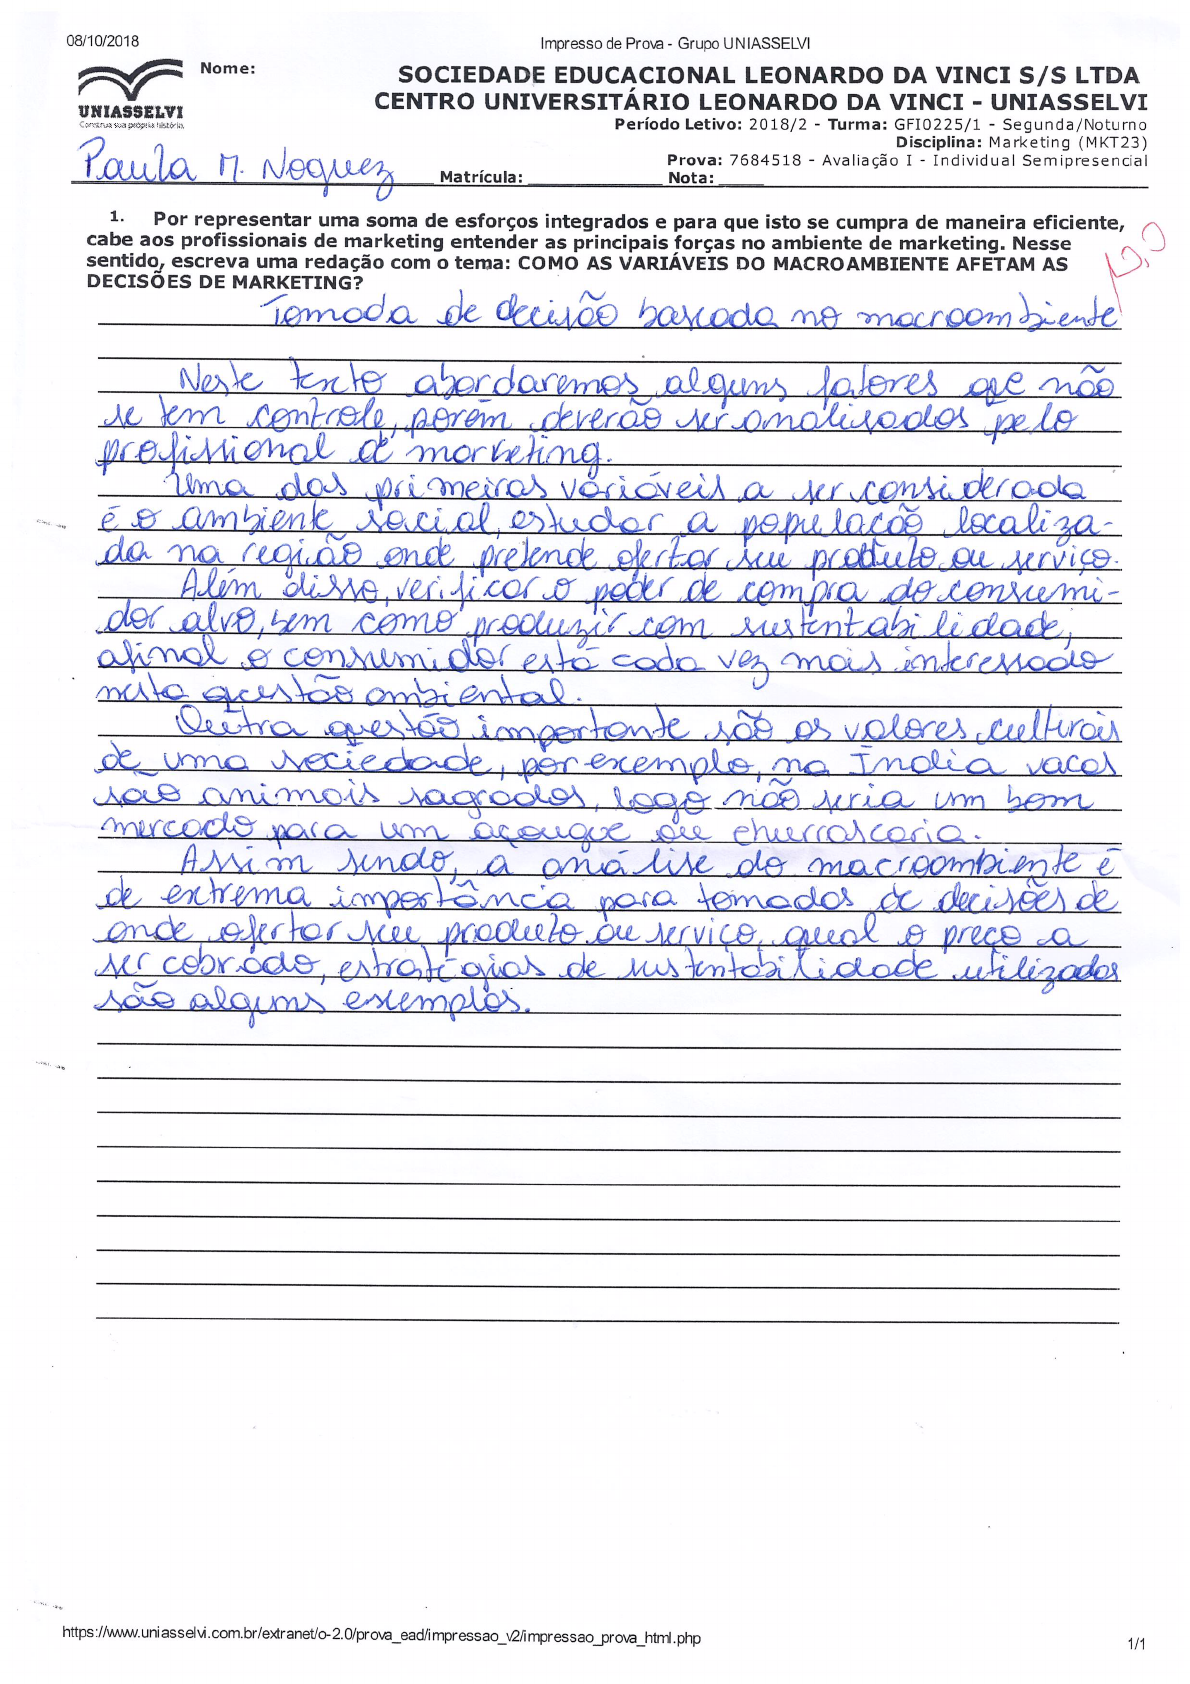 08/10/2018
Impresso de Prova - Grupo UNIASSELVI
UNIASSELVI
Construa sua própria história.
Nome:
SOCIEDADE EDUCACIONAL LEONARDO DA VINCI S/S LTDA
CENTRO UNIVERSITÁRIO LEONARDO DA VINCI - UNIASSELVI
Período Letivo: 2018/2 - Turma: GFI0225/1 - Segunda/Noturno
Disciplina: Marketing (MKT23)
Prova: 7684518 - Avaliação I - Individual Semipresencial
Paula M. Noguez Matrícula: Nota:
1. Por representar uma soma de esforços integrados e para que isto se cumpra de maneira eficiente,
cabe aos profissionais de marketing entender as principais forças no ambiente de marketing. Nesse
sentido, escreva uma redação com o tema: COMO AS VARIÁVEIS DO MACROAMBIENTE AFETAM AS
DECISÕES DE MARKETING?
10,0
Tomada de decisão baseada no macroambiente
Neste texto abordaremos alguns fatores que não
se tem controle, porém deverão ser analisados pelo
profissional de marketing.
Uma das primeiras variáveis a ser considerada
é o ambiente social, estudar a população localiza-
da na região onde pretende ofertar seu produto ou serviço.
Além disso, verificar o poder de compra do consumi-
dor alvo, bem como produzir com sustentabilidade,
afinal o consumidor está cada vez mais interessado
nesta questão ambiental.
Outra questão importante são os valores culturais
de uma sociedade, por exemplo, na Índia vacas
são animais sagrados, logo não seria um bom
mercado para um açougue ou churrascaria.
Assim sendo, a análise do macroambiente é
de extrema importância para tomadas de decisões de
onde ofertar seu produto ou serviço, qual o preço a
ser cobrado, estratégias de sustentabilidade utilizadas
são alguns exemplos.
https://www.uniasselvi.com.br/extranet/o-2.0/prova_ead/impressao_v2/impressao_prova_html.php
1/1